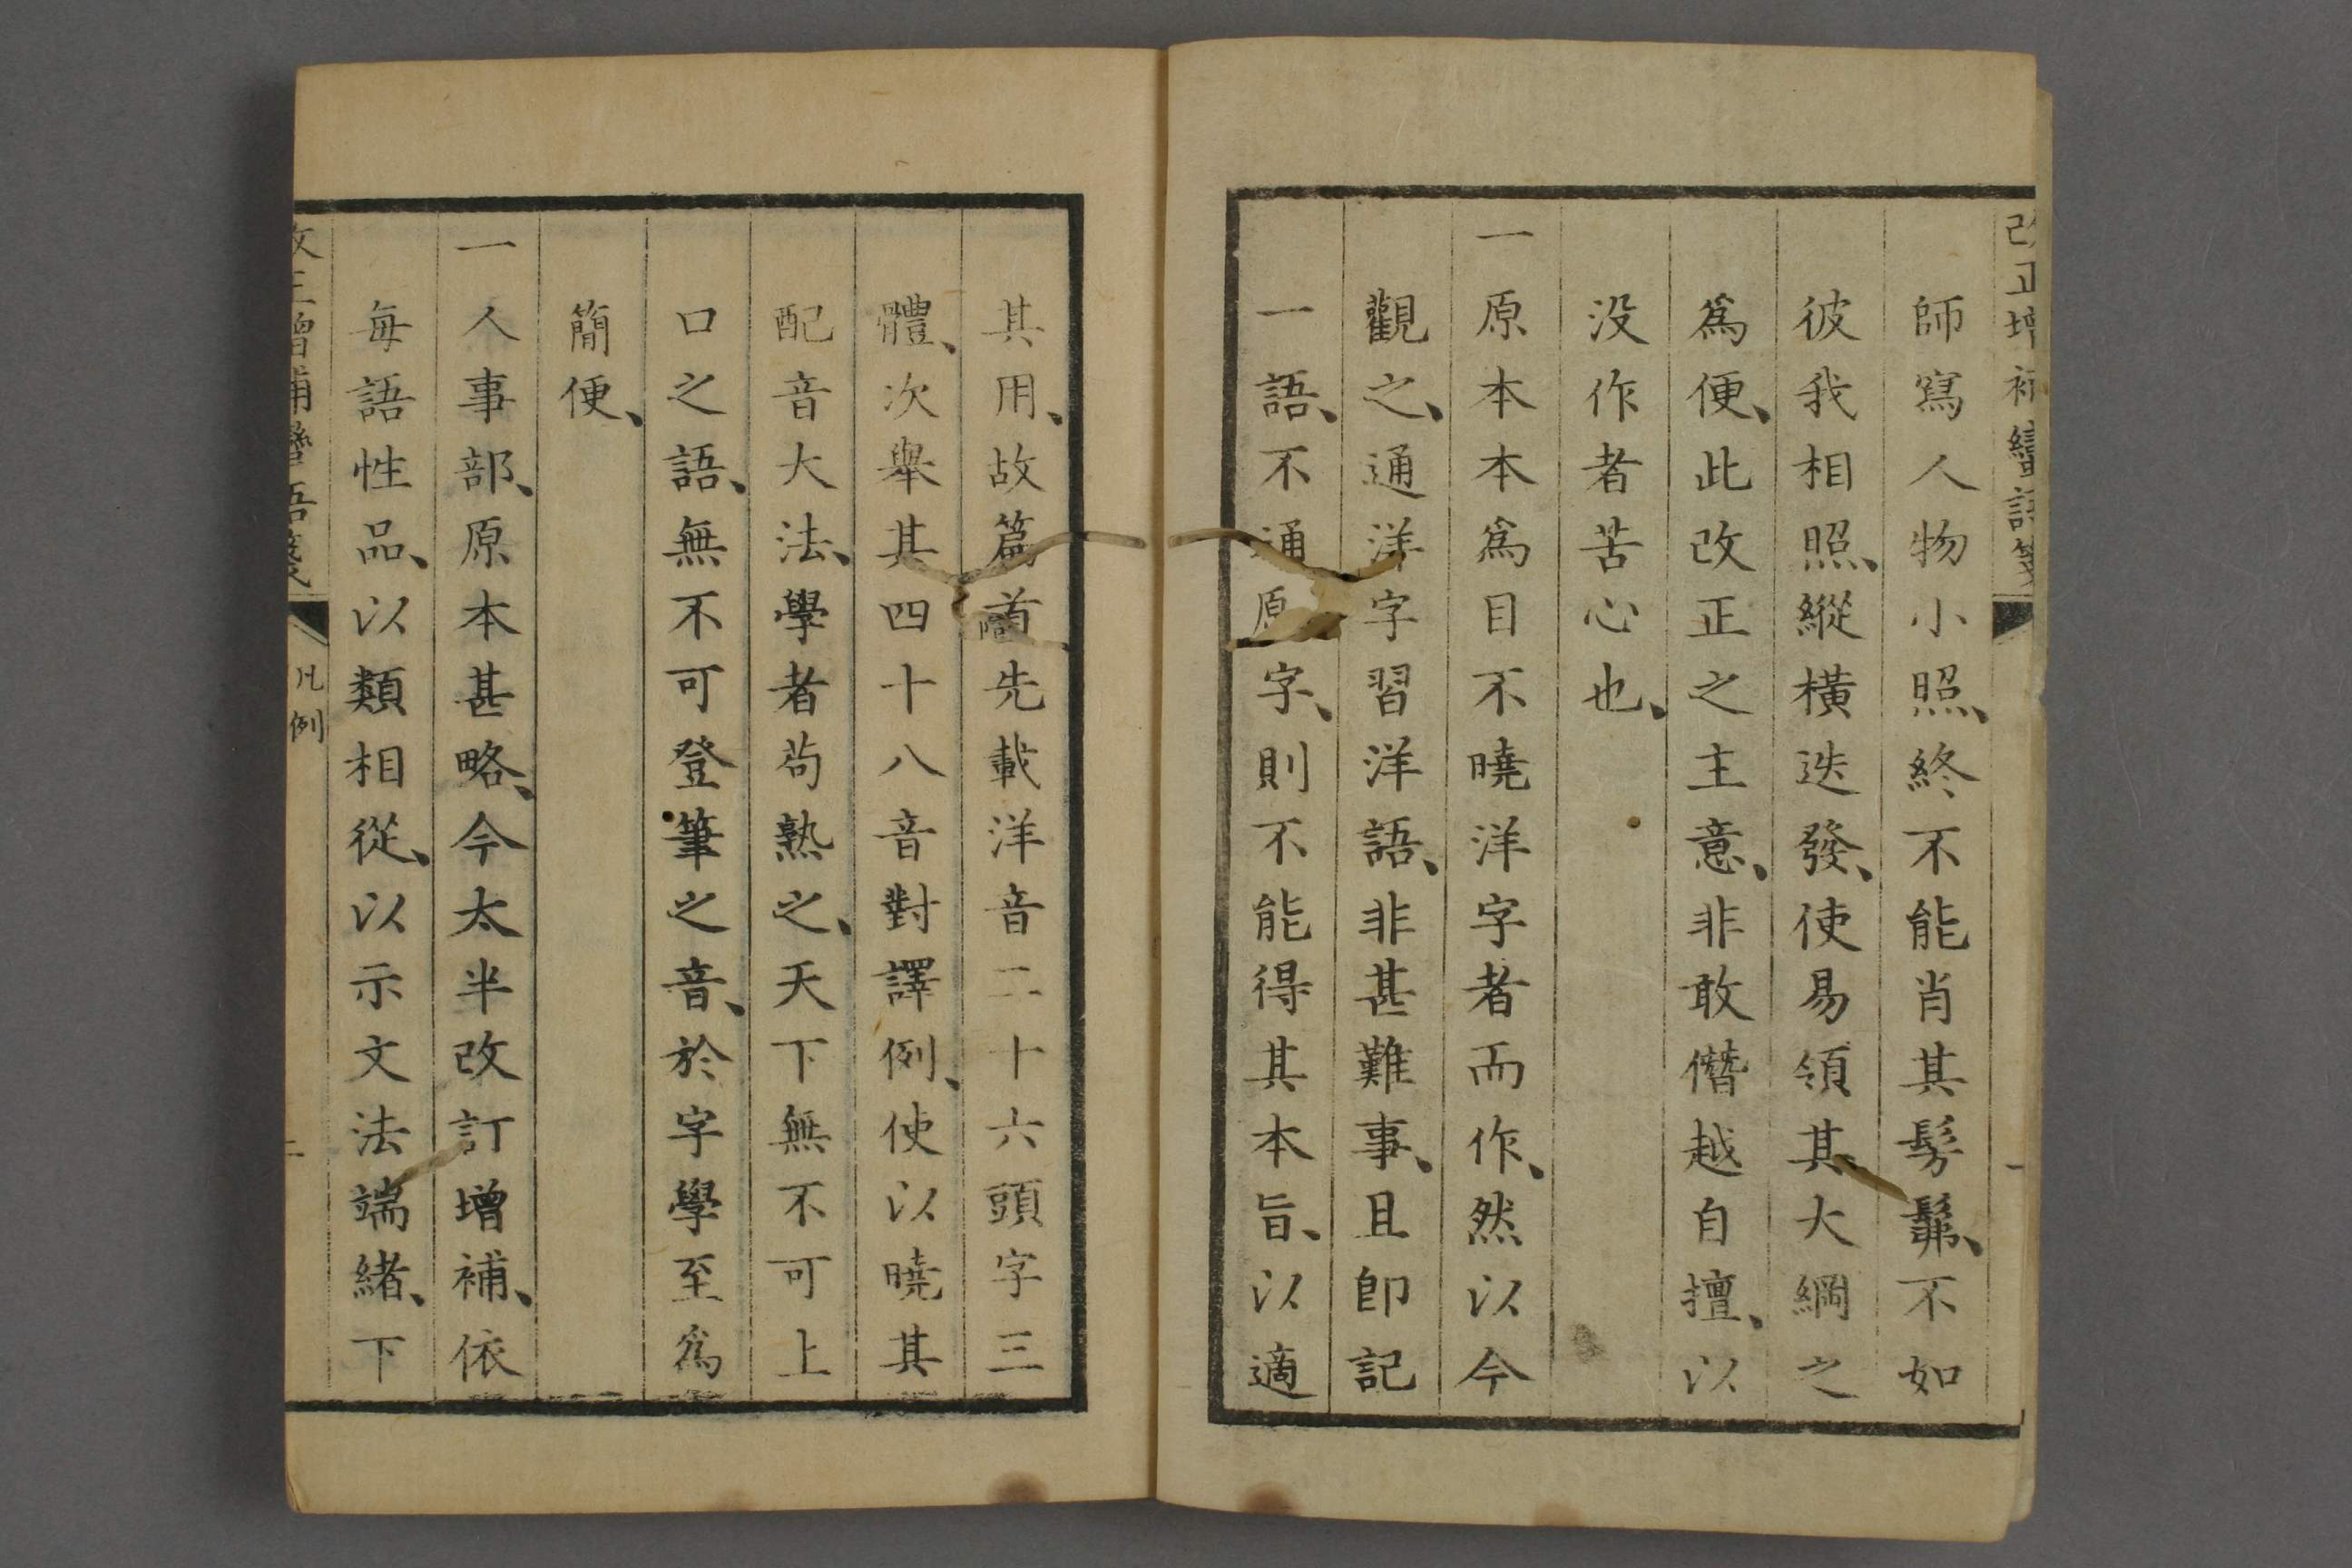 改正增補蠻語箋
一
師寫人物小照、終不能肖其髣髴、不如
彼我相照、縱橫迭發、使易領其大綱之
爲便、此改正之主意、非敢僭越自擅、以
没作者苦心也、
一原本本爲目不曉洋字者而作、然以今
觀之、通洋字習洋語、非甚難事、且即記
一語、不通原字、則不能得其本旨、以適
其用、故篇首先載洋音二十六頭字三
體、次舉其四十八音對譯例、使以曉其
配音大法、學者苟熟之、天下無不可上
口之語、無不可登筆之音、於字學至爲
簡便、
一人事部、原本甚略、今太半改訂增補、依
每語性品、以類相從、以示文法端緒、下
改正增補蠻語箋
凡例